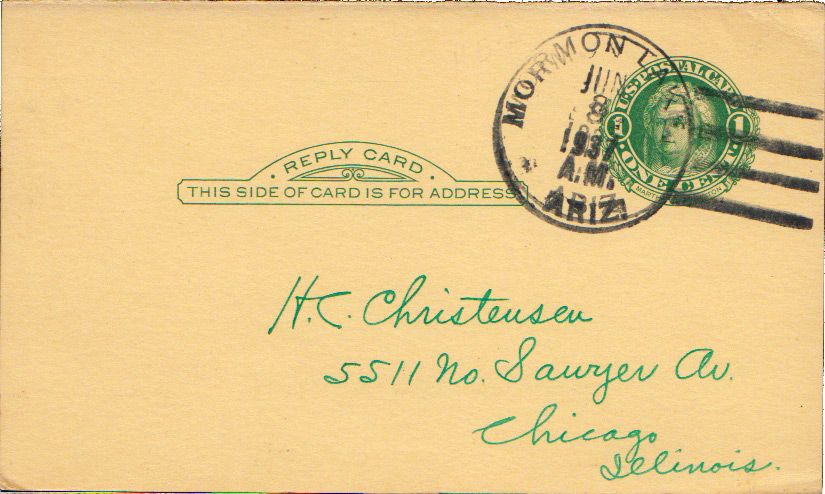 MORMON LAKE
JUN
8
1937
A.M.
ARIZ.
U.S. POSTAL CARD
1 1
ONE CENT
REPLY CARD
THIS SIDE OF CARD IS FOR ADDRESS
H. C. Christensen
5511 No. Sawyer Av.
Chicago
Illinois.